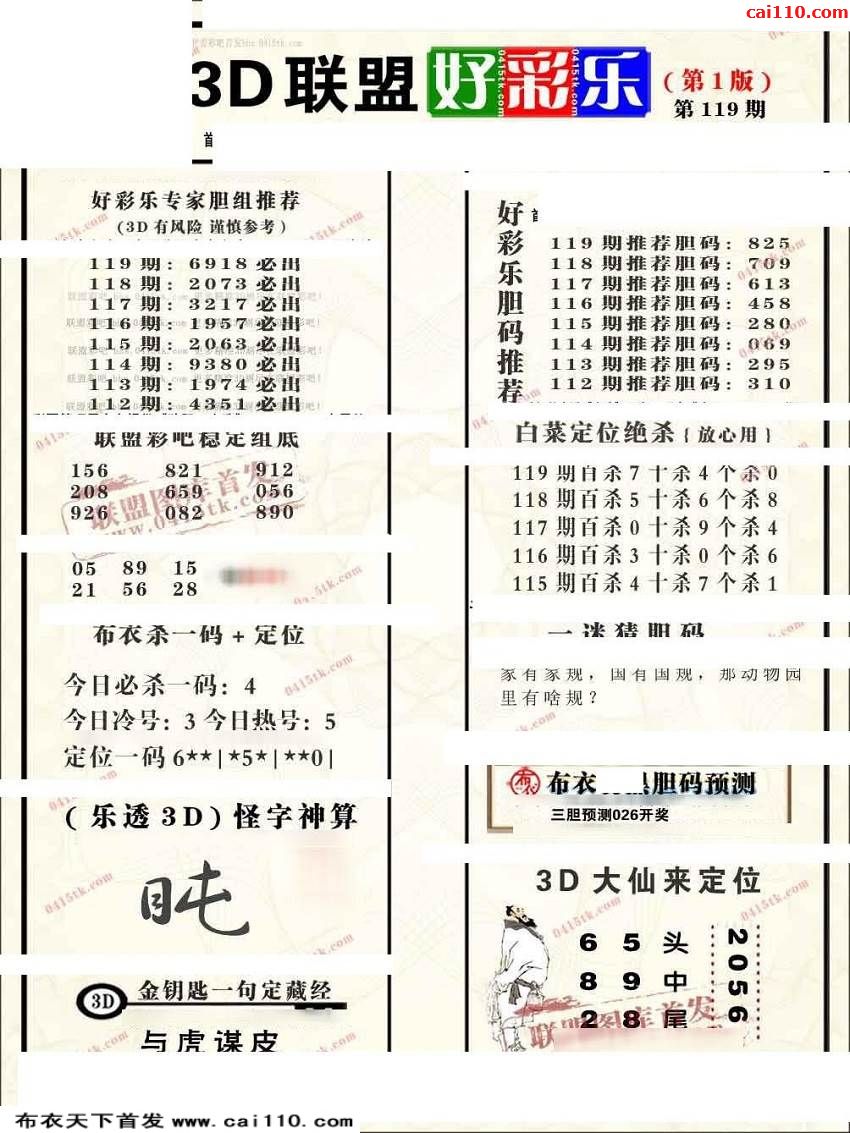 cai110.com
3D联盟好彩乐
(第1版)
第119期
首
好彩乐专家胆组推荐
(3D有风险 谨慎参考)
119期: 6918必出
118期: 2073必出
117期: 3217必出
116期: 1957必出
115期: 2063必出
114期: 9380必出
113期: 1974必出
112期: 4351必出
联盟彩吧稳定组底
156 821 912
208 659 056
926 082 890
联盟图库首发
www.0415tk.com
05 89 15
21 56 28
布衣杀一码+定位
今日必杀一码: 4
今日冷号: 3 今日热号: 5
定位一码 6**|*5*|**0|
(乐透3D)怪字神算
3D 金钥匙一句定藏经
与虎谋皮
好彩乐胆码推荐
119期推荐胆码: 825
118期推荐胆码: 709
117期推荐胆码: 613
116期推荐胆码: 458
115期推荐胆码: 280
114期推荐胆码: 069
113期推荐胆码: 295
112期推荐胆码: 310
白菜定位绝杀{放心用}
119期百杀7十杀4个杀0
118期百杀5十杀6个杀8
117期百杀0十杀9个杀4
116期百杀3十杀0个杀6
115期百杀4十杀7个杀1
一迷猜胆码
家有家规，国有国规，那动物园
里有啥规？
布衣 胆码预测
三胆预测026开奖
3D大仙来定位
6 5 头
8 9 中
2 8 尾
2056
联盟图库首发
0415tk.com
布衣天下首发 www.cai110.com